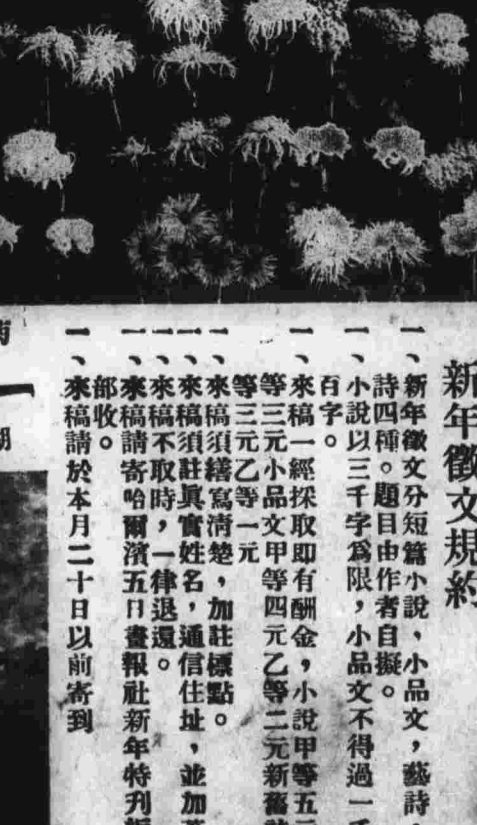 新年徵文規約
一、新年徵文分短篇小說、小品文，藝詩，
詩四種。題目由作者自擬。
一、小說以三千字爲限，小品文不得過一千
百字。
一、來稿一經採取即有酬金，小說甲等五元
等三元小品文甲等四元乙等二元新舊詩
等三元乙等一元
一、來稿須繕寫清楚，加註標點。
一、來稿須註眞實姓名，通信住址，並加蓋
一、來稿不取時，一律退還。
一、來稿請寄哈爾濱五日畫報社新年特刊
部收。
一、來稿請於本月二十日以前寄到
一
期